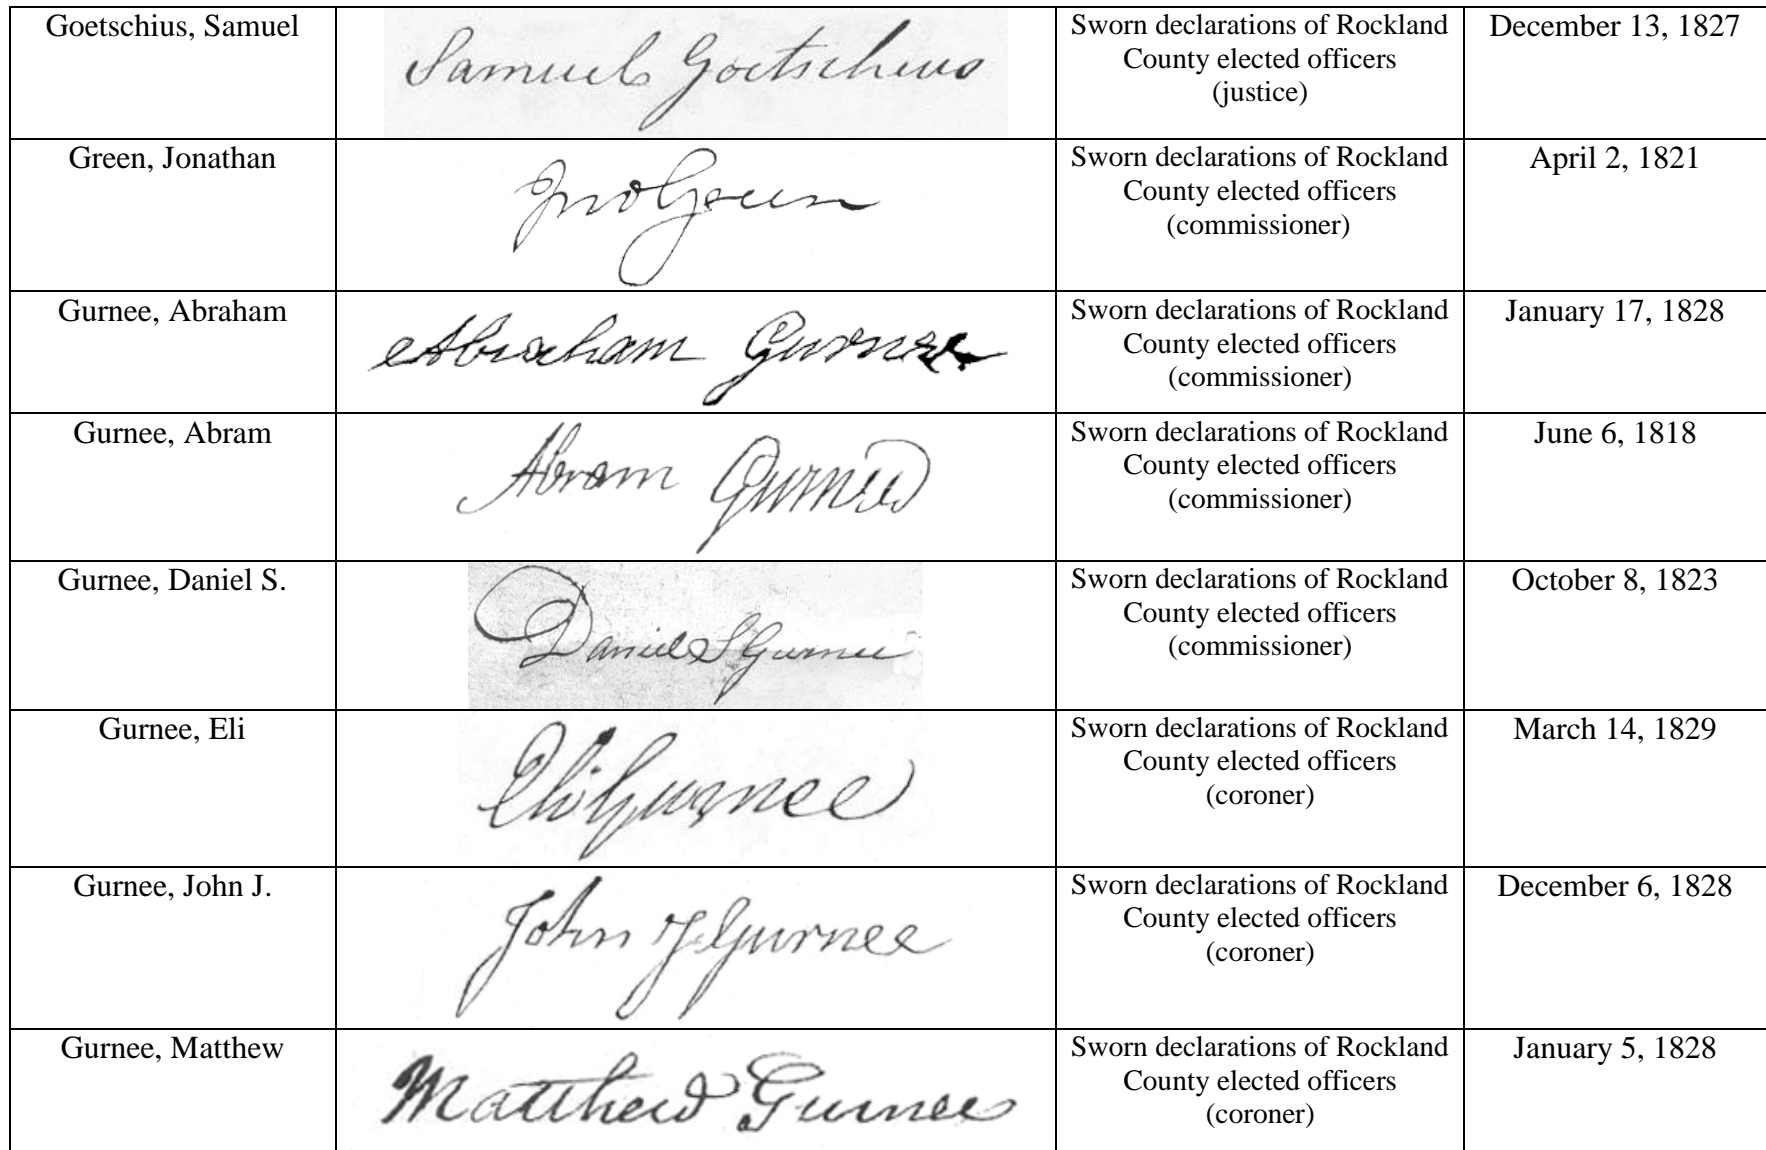 Goetschius, Samuel
Samuel Goetschius
Sworn declarations of Rockland
County elected officers
(justice)
December 13, 1827
Green, Jonathan
Jno Green
Sworn declarations of Rockland
County elected officers
(commissioner)
April 2, 1821
Gurnee, Abraham
Abraham Gurnee
Sworn declarations of Rockland
County elected officers
(commissioner)
January 17, 1828
Gurnee, Abram
Abram Gurnee
Sworn declarations of Rockland
County elected officers
(commissioner)
June 6, 1818
Gurnee, Daniel S.
Daniel S Gurnee
Sworn declarations of Rockland
County elected officers
(commissioner)
October 8, 1823
Gurnee, Eli
Eli Gurnee
Sworn declarations of Rockland
County elected officers
(coroner)
March 14, 1829
Gurnee, John J.
John J. Gurnee
Sworn declarations of Rockland
County elected officers
(coroner)
December 6, 1828
Gurnee, Matthew
Matthew Gurnee
Sworn declarations of Rockland
County elected officers
(coroner)
January 5, 1828